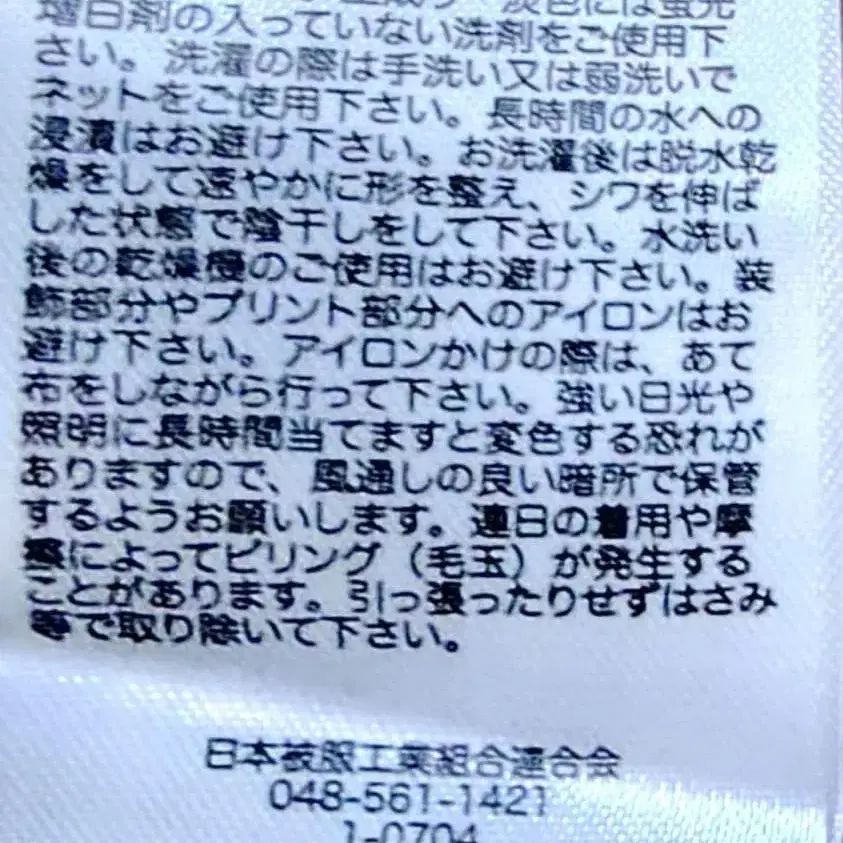 淡色には蛍光
増白剤の入っていない洗剤をご使用下
さい。洗濯の際は手洗い又は弱洗いで
ネットをご使用下さい。長時間の水への
浸漬はお避け下さい。お洗濯後は脱水乾
燥をして速やかに形を整え、シワを伸ば
した状態で陰干しをして下さい。水洗い
後の乾燥機のご使用はお避け下さい。装
飾部分やプリント部分へのアイロンはお
避け下さい。アイロンかけの際は、あて
布をしながら行って下さい。強い日光や
照明に長時間当てますと変色する恐れが
ありますので、風通しの良い暗所で保管
するようお願いします。連日の着用や摩
擦によってピリング（毛玉）が発生する
ことがあります。引っ張ったりせずはさみ
等で取り除いて下さい。
日本被服工業組合連合会
048-561-1421
1-0704